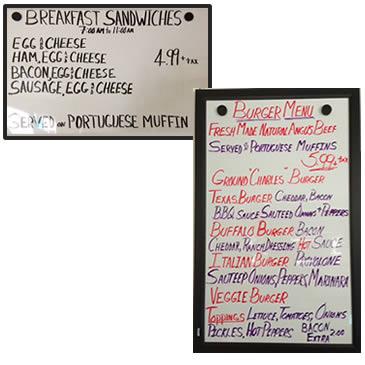 BREAKFAST SANDWICHES
7:00 AM to 11:00 AM
EGG & CHEESE
HAM, EGG & CHEESE 4.99 + TAX
BACON, EGG & CHEESE
SAUSAGE, EGG & CHEESE
SERVED on PORTUGUESE MUFFIN
BURGER MENU
FRESH MADE NATURAL ANGUS BEEF
SERVED on PORTUGUESE MUFFINS
5.99 + TAX
GROUND "CHARLES" BURGER
TEXAS BURGER CHEDDAR, BACON
BBQ SAUCE SAUTEED ONIONS + PEPPERS
BUFFALO BURGER BACON
CHEDAR, RANCH DRESSING HOT SAUCE
ITALIAN BURGER PROVOLONE
SAUTEED ONIONS, PEPPERS, MARINARA
VEGGIE BURGER
TOPPINGS LETTUCE, TOMATOES, ONIONS
PICKLES, HOT PEPPERS BACON
EXTRA 2.00